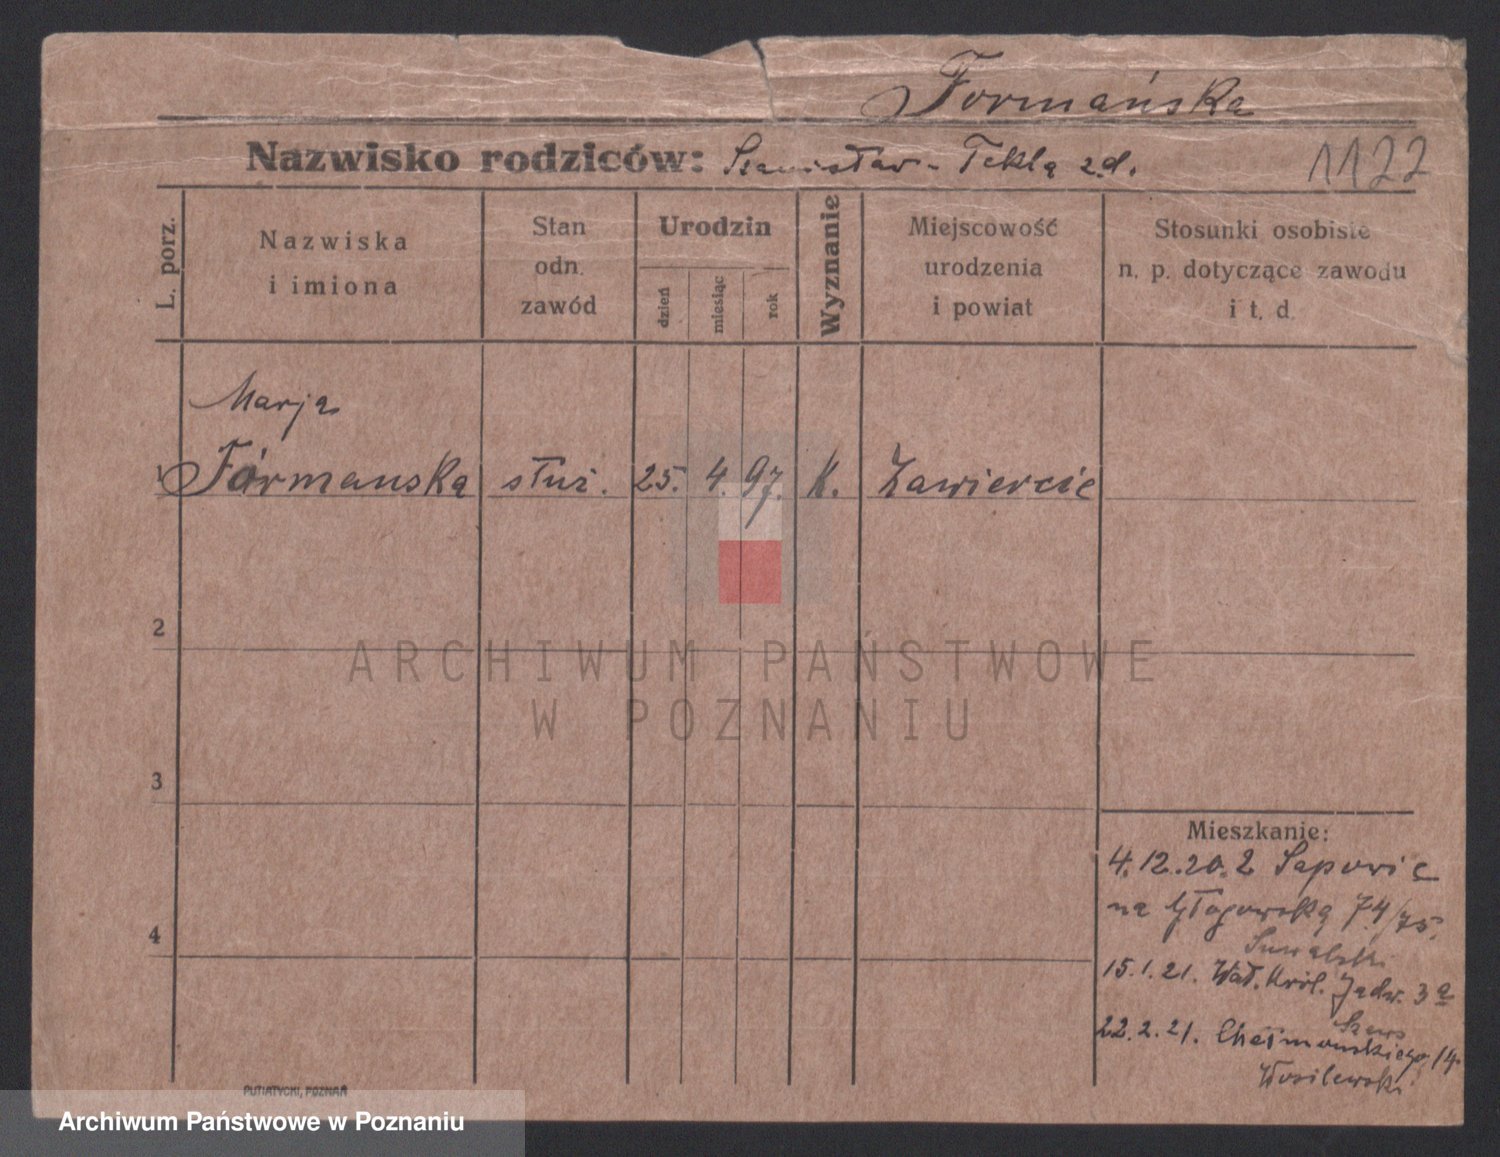 Formańska
Nazwisko rodziców: Stanisław - Tekla z.d.
1122
L. porz.
Nazwiska
i imiona
Stan
odn.
zawód
Urodzin
dzień
miesiąc
rok
Wyznanie
Miejscowość
urodzenia
i powiat
Stosunki osobiste
n. p. dotyczące zawodu
i t. d.
Marja
1 Formanska służ. 25. 4. 97. K. Zawiercie
2
ARCHIWUM PAŃSTWOWE
W POZNANIU
3
Mieszkanie:
4.12.20. z Sapowic
na Głogowską 74/75.
4
Suwalski
15.1.21. Wał. Król. Jadw. 3a
22.2.21. Chełmońskiego 14
Wosilewski
PUTIATYCKI, POZNAŃ
Archiwum Państwowe w Poznaniu